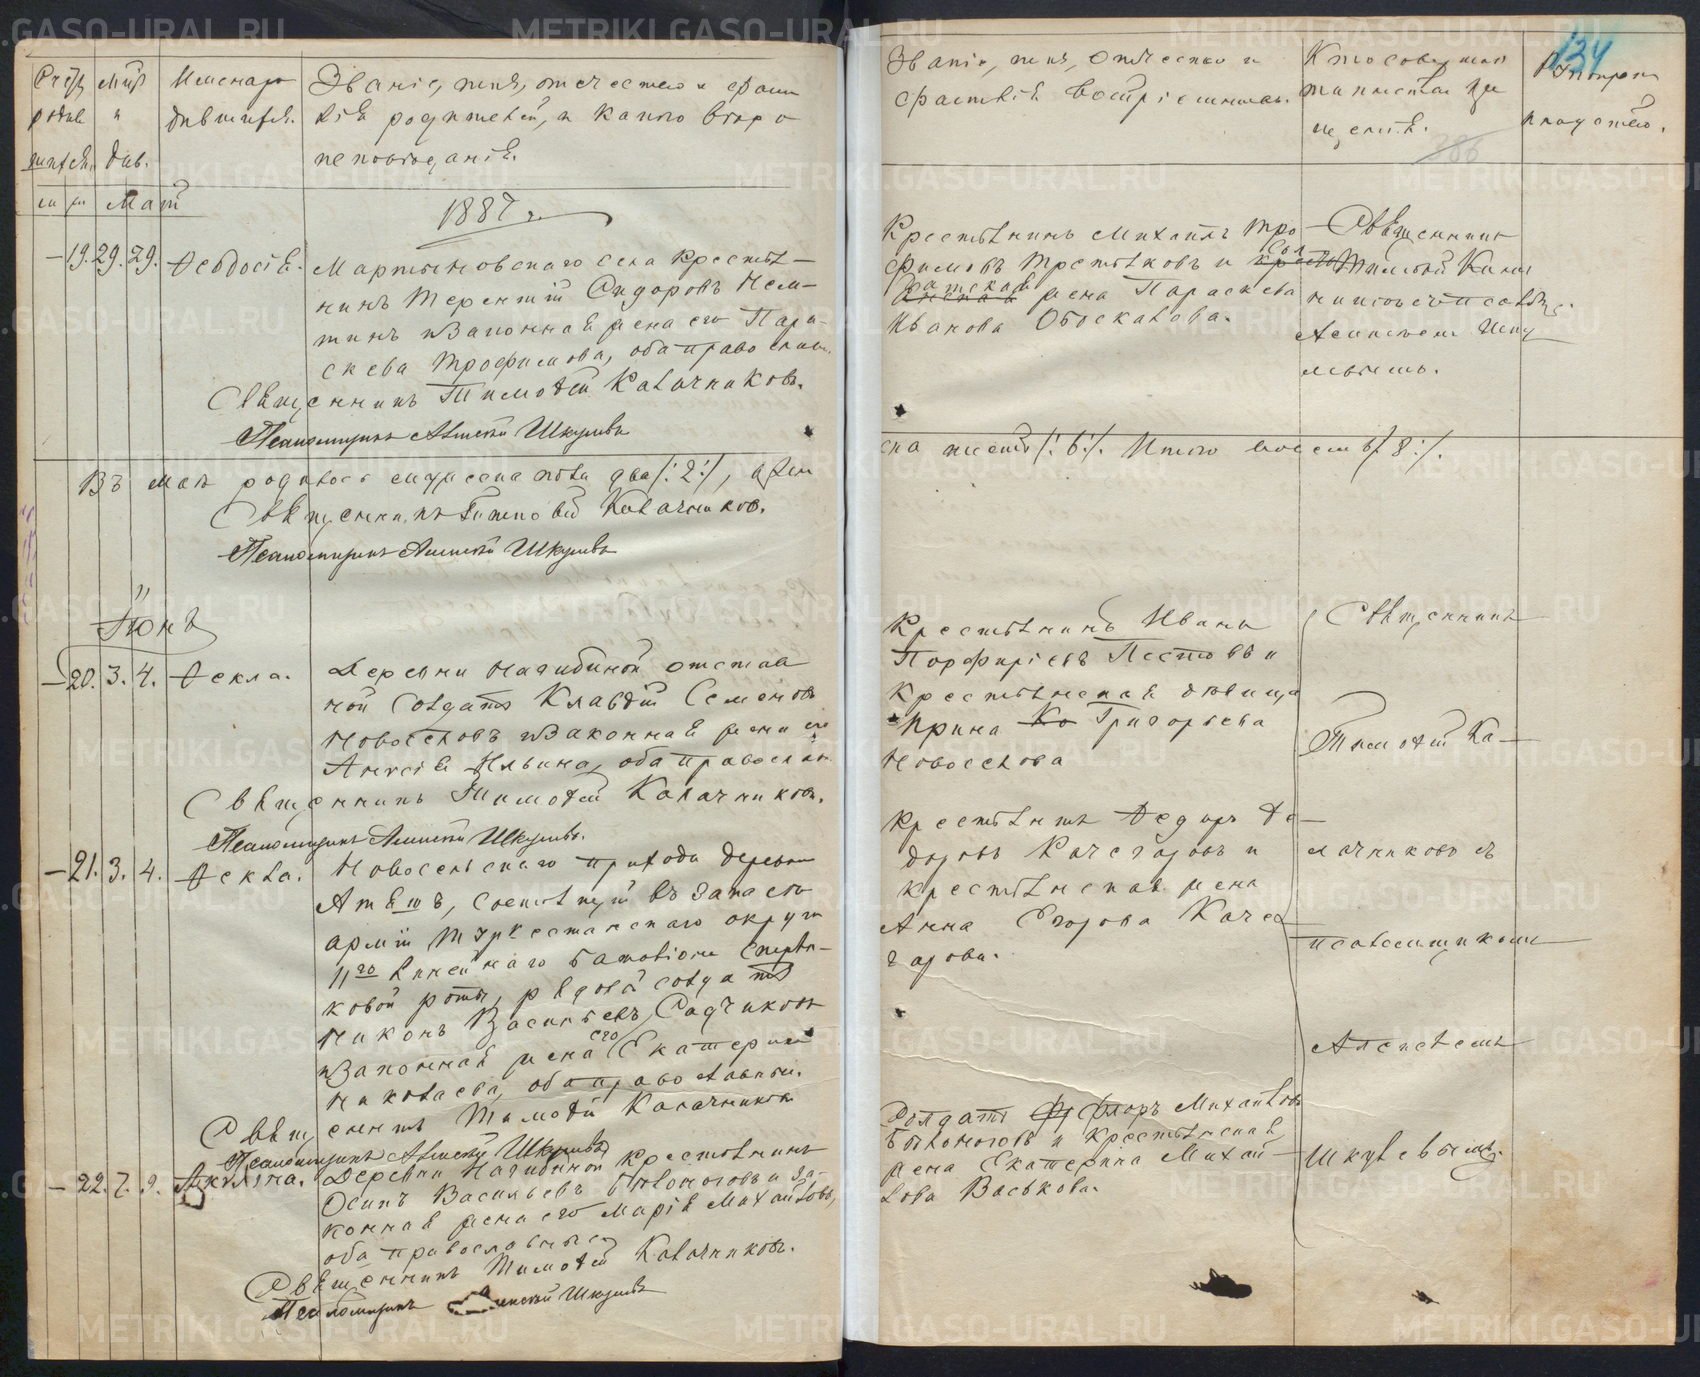 Счетъ родив шихся.
Мѣс. и дни.
Имена ро дившихся.
Званіе, имя, отчество и фами
лія родителей, и какого вѣро
исповѣданія.
Май
1887 г.
19. 29. 29. Ѳеодосія.
Мартыновскаго села крестья-
нинъ Терентій Сидоровъ
и законная жена его Пара-
скева Трофимова, оба православн.
Священникъ Тимоѳей Калачниковъ.
Псаломщикъ Алексѣй Шкулевъ
Въ маѣ родилось мужеска пола два /: 2 :/, жен
Священникъ Тимоѳей Калачниковъ.
Псаломщикъ Алексѣй Шкулевъ
Іюнь
20. 3. 4. Ѳекла.
Деревни Нагибиной отстав
ной солдатъ Клавдій Семеновъ
Новоселовъ и законная жена его
Анисія Ильина, оба православн.
Священникъ Тимоѳей Калачниковъ.
Псаломщикъ Алексѣй Шкулевъ.
21. 3. 4. Ѳекла.
Новосельскаго прихода деревни
состоящій въ запасѣ
арміи Туркестанскаго округа
11го Линейнаго баталіона Стрѣл-
ковой роты, рядовой солдатъ
Никонъ Васильевъ Садчиковъ
и законная жена его Екатерина
Николаева, оба православные.
Священникъ Тимоѳей Калачниковъ
Псаломщикъ Алексѣй Шкулевъ
22. 7. 9. Акулина.
Деревни Нагибиной крестьянинъ
Осипъ Васильевъ Бѣлоноговъ и за-
конная жена его Марія Михайлова,
оба православные
Священникъ Тимоѳей Калачниковъ.
Псаломщикъ Алексѣй Шкулевъ
Званіе, имя, отчество и
фамилія воспріемниковъ.
Кто совершалъ
таинство кре
щенія.
134
186
Крестьянинъ Михаилъ Тро
фимовъ Третьяковъ и Сол
датская жена Параскева
Иванова Обоскалова.
Священникъ
Тимоѳей Калач
никовъ съ псаломщ.
Алексѣемъ Шку
левымъ.
ска шесть /: 6 :/. Итого восемь /: 8 :/.
Крестьянинъ Иванъ
Порфирьевъ Пестовъ и
крестьянская дѣвица
Ирина Григорьева
Новоселова
Священникъ
Тимоѳей Ка-
Крестьянинъ Ѳедоръ Ѳе-
доровъ Качегаровъ и
крестьянская жена
Анна Егорова Каче
гарова.
лачниковъ съ
псаломщикомъ
Алексѣемъ
Солдатъ Флоръ Михайловъ
Бѣлоноговъ и крестьянская
жена Екатерина Михай-
лова Васькова.
Шкулевымъ.
METRIKI.GASO-URAL.RU